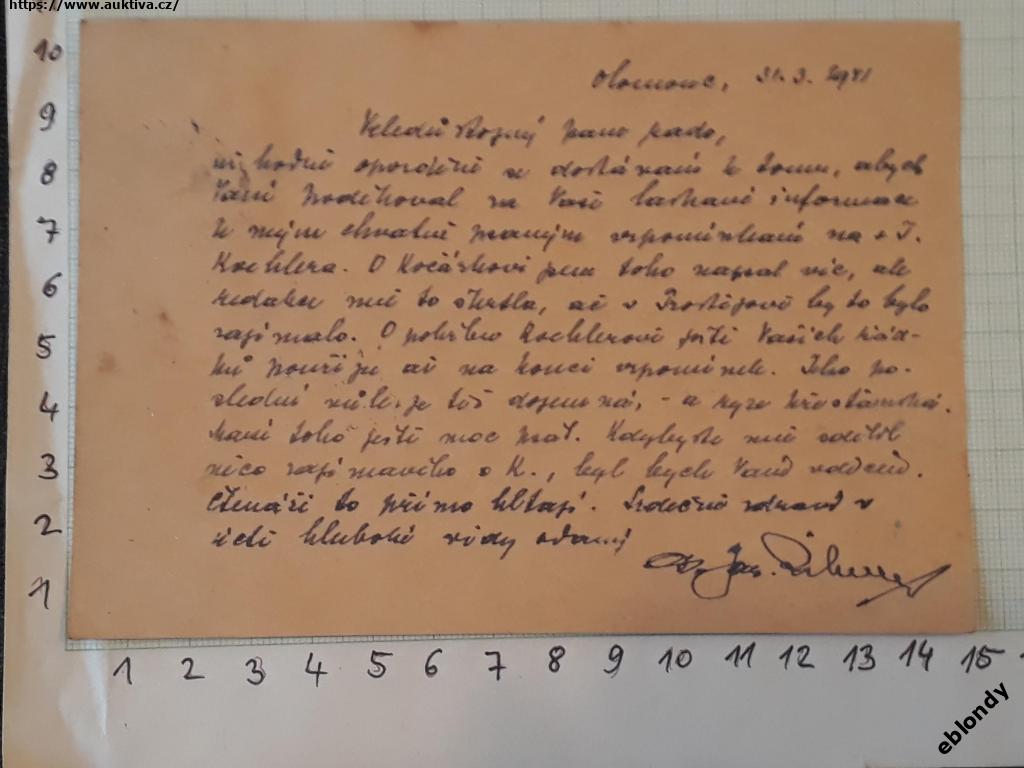 https://www.auktiva.cz/
Olomouc, 31. 3. 1941
Veledůstojný pane rado,
až hodně opozděně se dostávám k tomu, abych
Vám poděkoval za Vaše laskavé informace
k mým chvatně psaným vzpomínkám na + J.
Koehlera. O Kočárkovi jsem toho napsal víc, ale
redakce mně to škrtla, ač v Prostějově by to bylo
zajímalo. O pohřbu Koehlerově ještě Vašich řád-
ků použiju až na konci vzpomínek. Jeho po-
slední vůle je též dojemná, - a ryze křesťanská.
Mám toho ještě moc psát. Kdybyste mně sdělil
něco zajímavého o K., byl bych Vám vděčen.
Čtenáři to přímo hltají. Srdečně zdraví v
úctě hluboké vždy oddaný
Dr. Jar.
10
9
8
7
6
5
4
3
2
1
1 2 3 4 5 6 7 8 9 10 11 12 13 14 15
eblondy